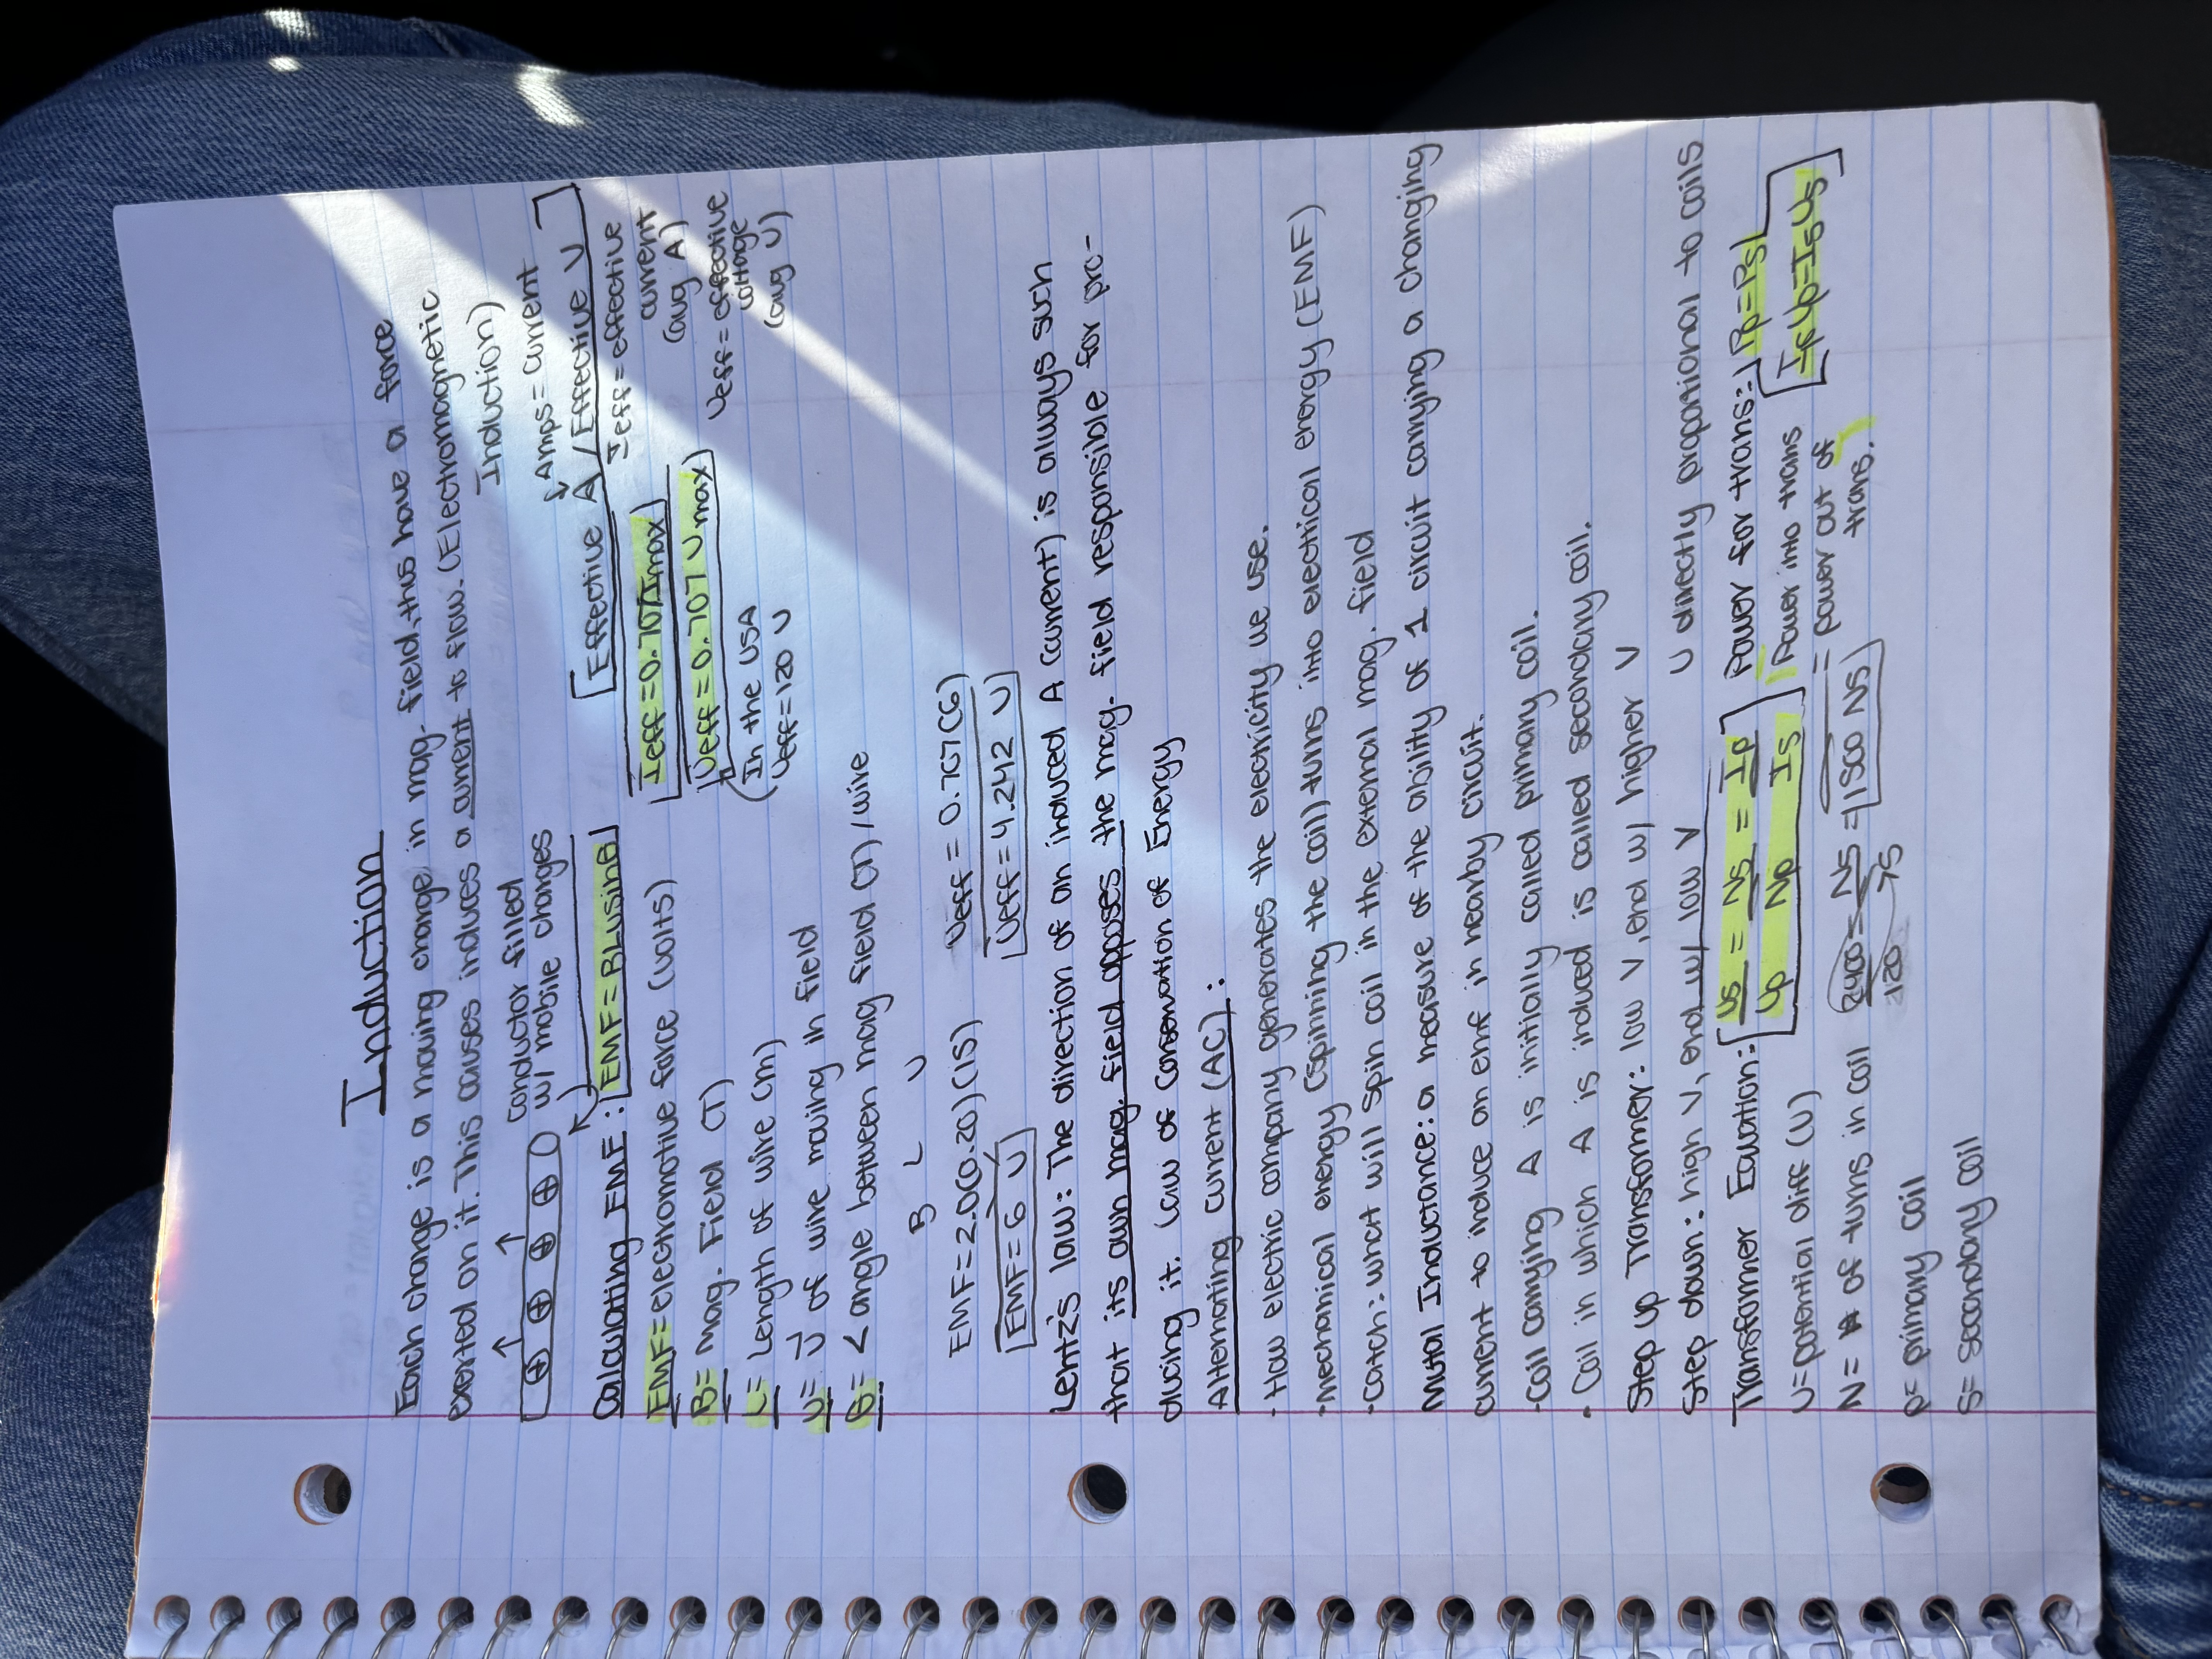 Induction
Each change is a moving change in mag. field, thus have a force
exerted on it. This causes induces a current to flow. (Electromagnetic
Induction)
conductor filled
w/ mobile charges
⊕ ⊕ ⊕ ⊕
Amps = current
Effective A / Effective V
Calculating EMF: EMF = BLvsinθ
EMF = electromotive force (volts)
B = mag. Field (T)
L = Length of wire (m)
v = v of wire moving in field
θ = < angle between mag field (T) / wire
Ieff = 0.707 Imax
Ieff = effective
current
(avg A)
Veff = 0.707 Vmax
Veff = effective
voltage
(avg V)
(In the USA
Veff = 120 V
B L V
EMF = 2.0(0.20)(15)
EMF = 6 V
Veff = 0.707(6)
Veff = 4.242 V
Lentz's law: The direction of an induced A (current) is always such
that its own mag. field opposes the mag. field responsible for pro-
ducing it. Law of Conservation of Energy
Alternating current (AC):
· How electric company generates the electricity we use.
· Mechanical energy (spinning the coil) turns into electrical energy (EMF)
· Catch: what will spin coil in the external mag. field
Mutal Inductance: a measure of the ability of 1 circuit carying a changing
current to induce an emf in nearby circuit.
· Coil carrying A is initially called primary coil.
· Coil in which A is induced is called secondary coil.
Step up Transformer: low V, end w/ higher V
Step down: high V, end w/ low V
V directly proportional to coils
Transformer Equation: Vs/Vp = Ns/Np = Ip/Is
Power for trans: Pp = Ps
IpVp = IsVs
Power into trans
= power out of
trans.
V = potential diff (V)
N = # of turns in coil
2400/120 = Ns/75 = 1500 Ns
P = primary coil
S = secondary coil